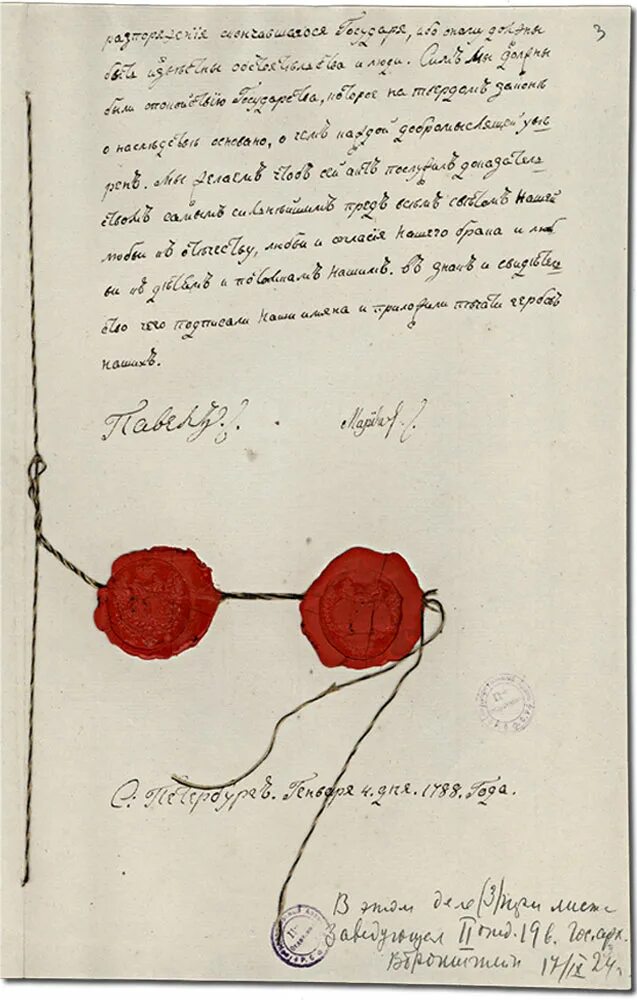 3
разпоряженія скончавшагося Государя, ибо онали должны
быть извѣстны обстоятельства и люди. Симъ мы должны
были спокойствію Государства, которое на твердомъ законѣ
о наслѣдствѣ основано, о чемъ каждой добромыслящей увѣ-
ренъ. Мы желаемъ чтобъ сей актъ послужилъ доказатель-
ствомъ самымъ сильнѣйшимъ предъ всѣмъ свѣтомъ Нашей
любви къ отечеству, любви и согласія Нашего брака и люб-
ви къ дѣтямъ и потомкамъ Нашимъ. Въ знакъ и свидѣтель-
ство чего подписали Наши имяна и приложили печати гербовъ
нашихъ.
Павелъ. Марія
С: Петербургъ. Генваря 4. дня. 1788. Года.
В этом деле (3) три листа
Заведующая II отд. 19 в. Гос. арх.
Бронштейн 17/IX 24 г.